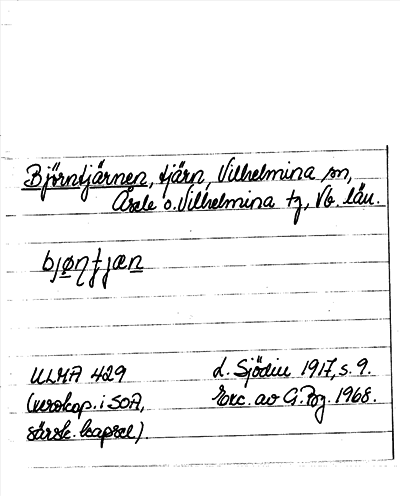 Björntjärnen, tjärn, Vilhelmina sn,
Åsele o. Vilhelmina tg, Vb. län.
bjøntjæn
ULMA 429
(verokop. i SOA,
särsk. kapsel).
L. Sjödin 1917, s. 9.
Exc. av G. 1968.